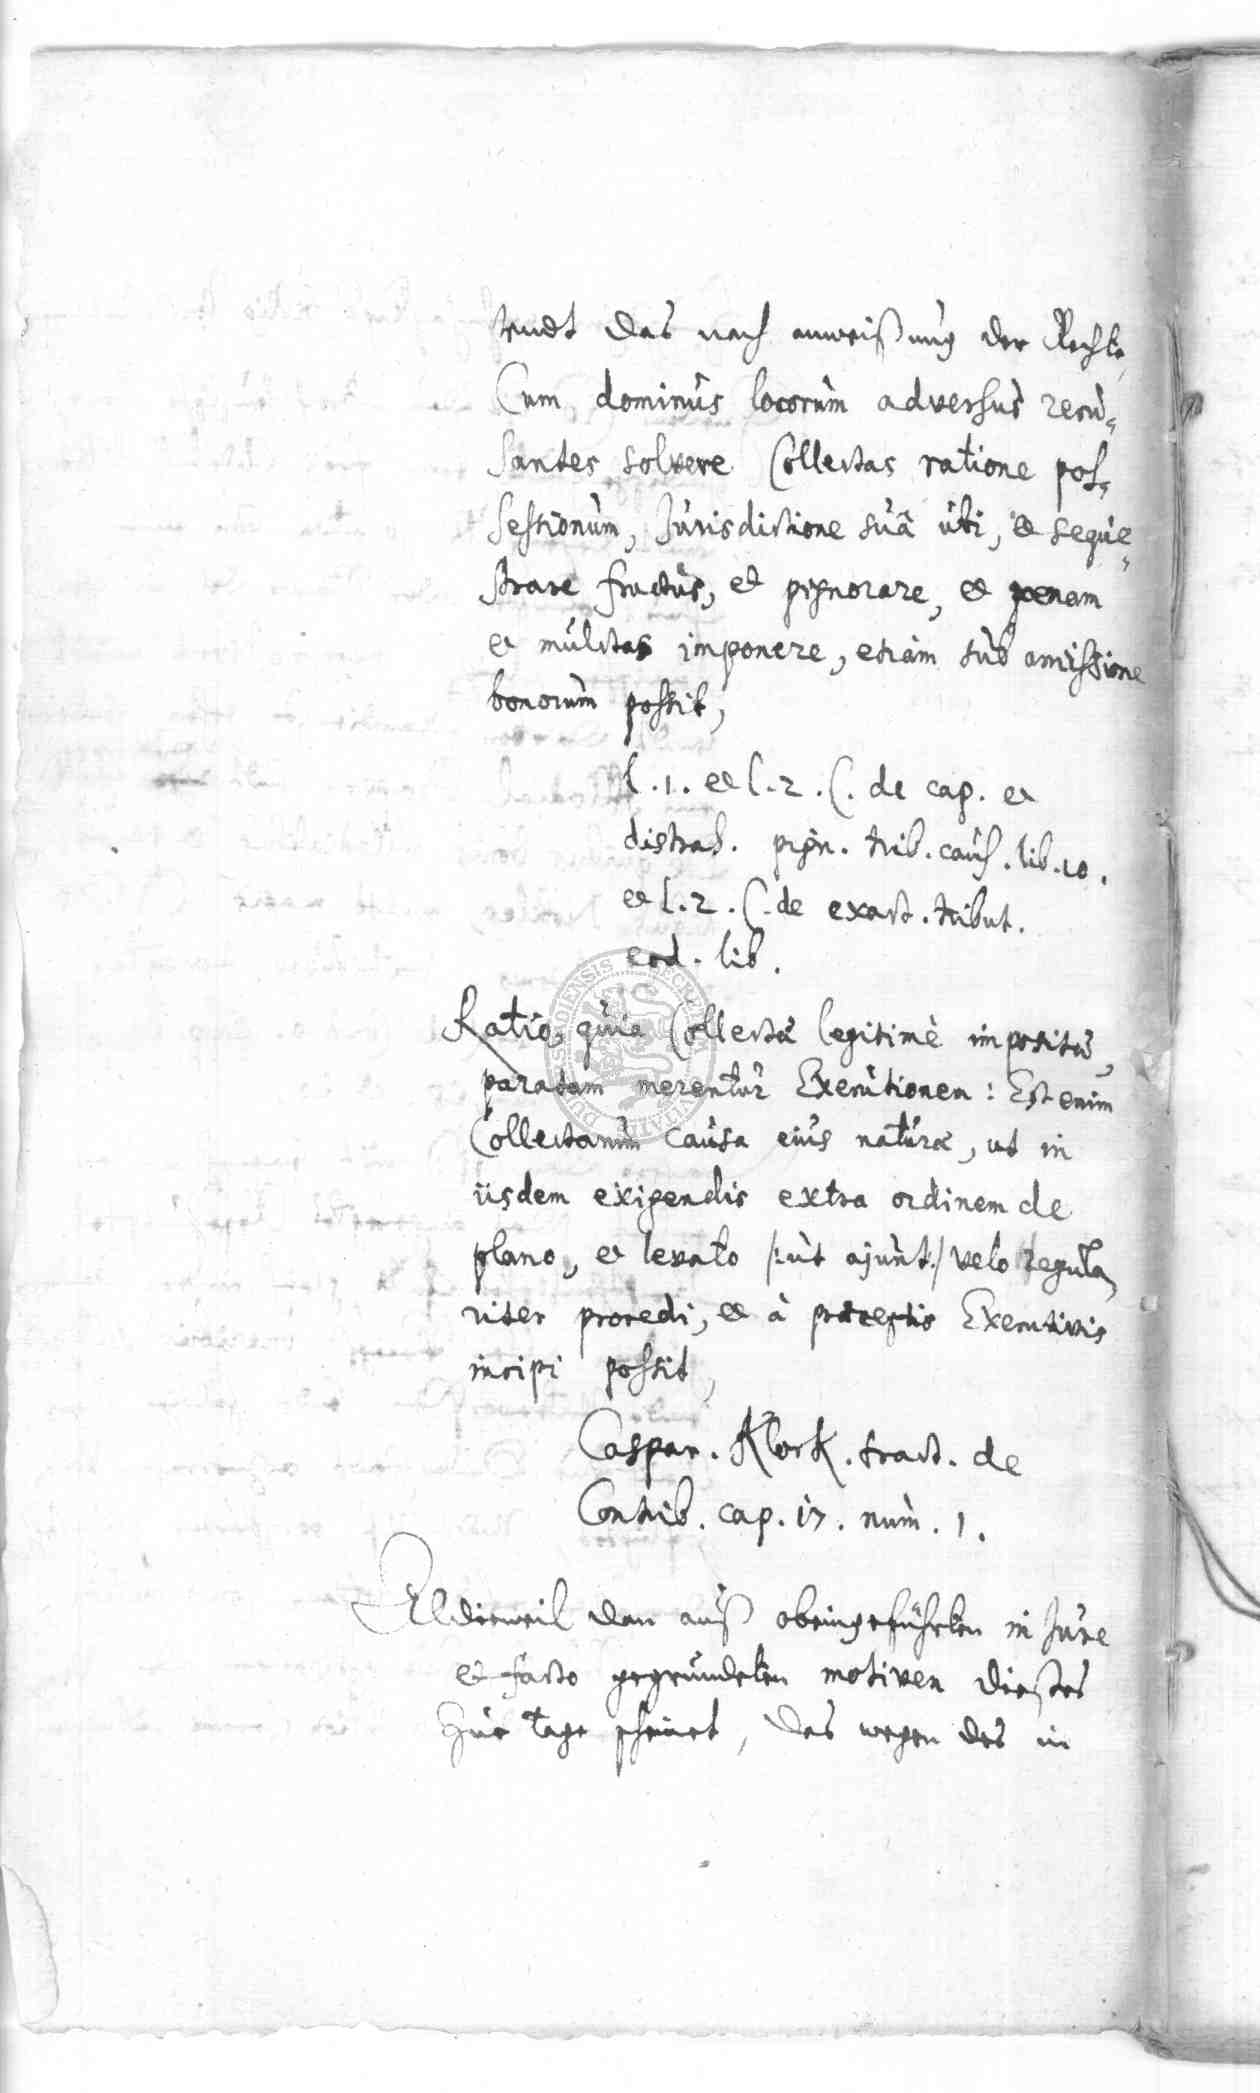 das nach anweißung der Rechte,
Cum dominus locorum adversus recu-
santes solvere Collectas ratione pos-
sessionum, Jurisdictione suâ uti, et seque-
strare fructus, et pignorare, et poenam
et mulctas imponere, etiam sub amissione
bonorum possit,
l. 1. et l. 2. C. de cap. et
distrah. pign. trib. caus. lib. 10.
et l. 2. C. de exact. tribut.
eod. lib.
Ratio, quia Collectae legitimè impositae,
paratam merentur Executionem: Est enim
Collectarum causa eius naturae, ut in
iisdem exigendis extra ordinem de
plano, et levato /:ut ajunt:/ velo regula-
riter procedi, et à praeceptis Executivis
incipi possit,
Caspar. Klock. tract. de
Contrib. cap. 17. num. 1.
Aldieweil dan auß obeingeführten in Jure
et facto gegründeten motiven dießes
Zue tage scheinet, das wegen des in